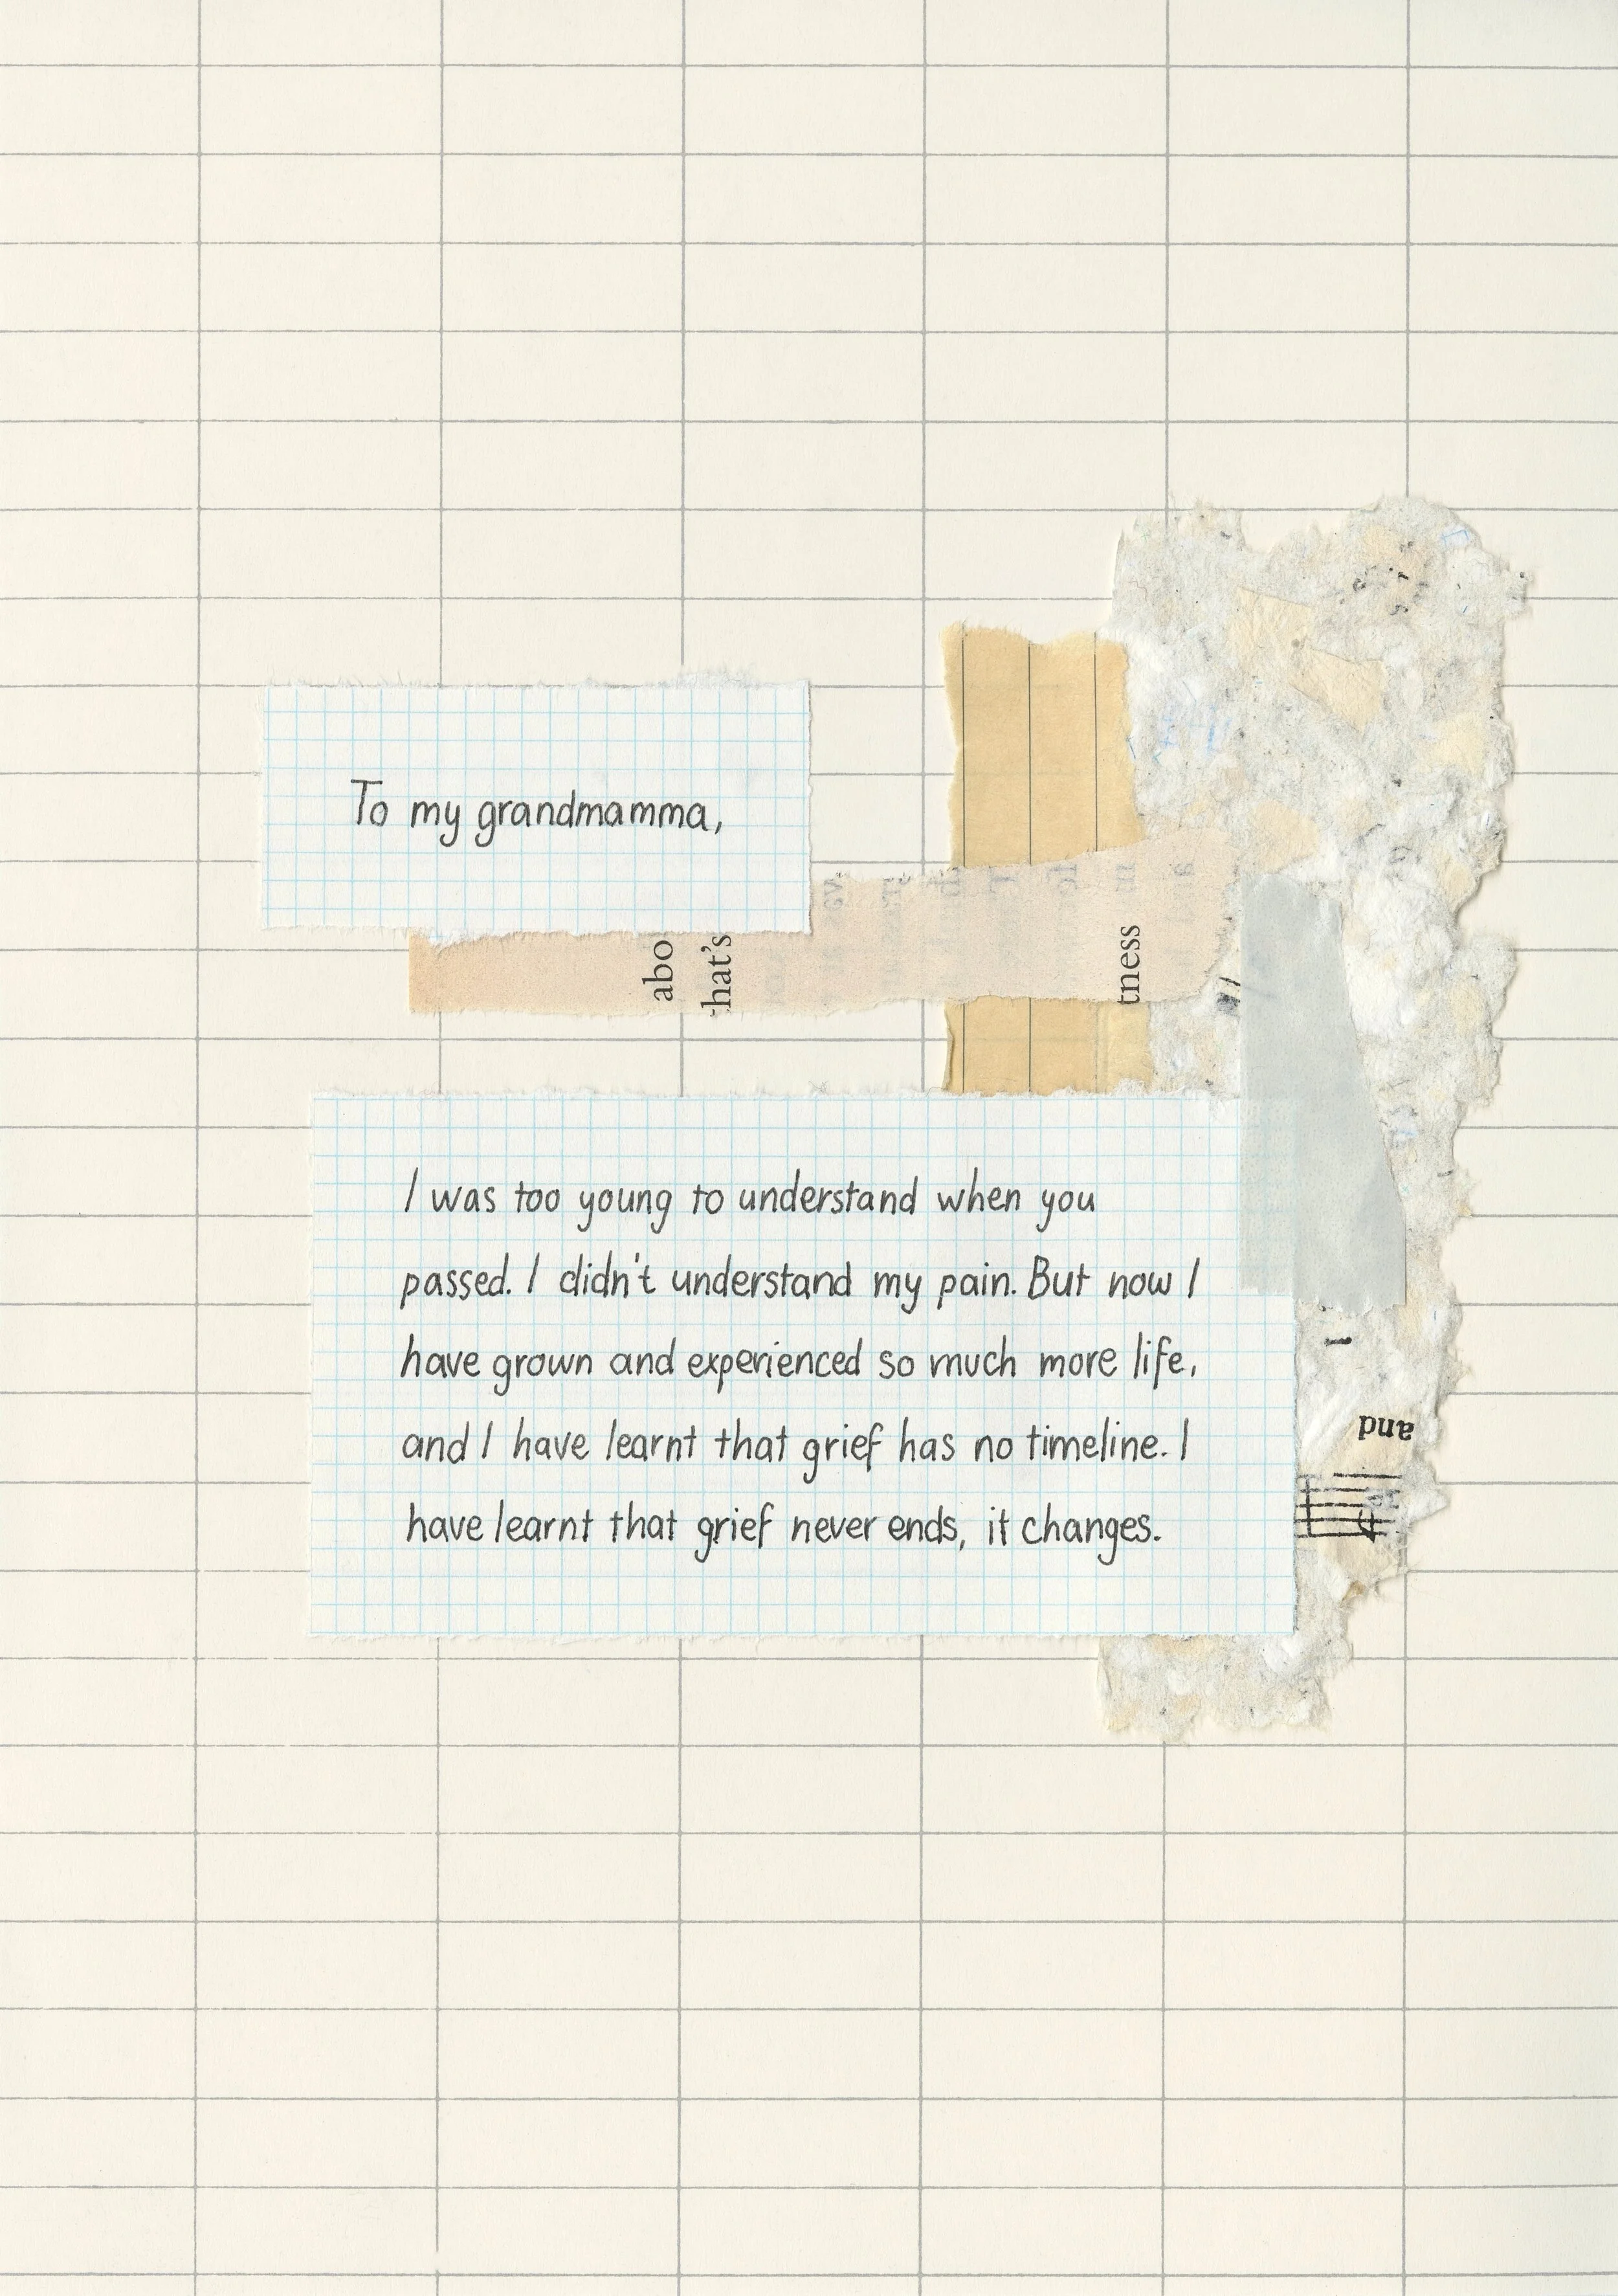 To my grandmamma,
abo
hat's
tness
I was too young to understand when you
passed. I didn't understand my pain. But now I
have grown and experienced so much more life,
and I have learnt that grief has no timeline. I
have learnt that grief never ends, it changes.
and